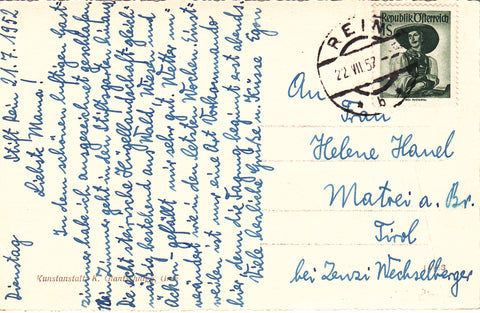 Dienstag
Stift Rein 21.7.1952
Liebste Mama!
In dem schönen luftigen Gast-
zimmer habe ich ausgezeichnet geschlafen.
Mein Zimmer geht in den Stiftsgarten hinaus.
Die echt steirische Hügellandschaft gleich-
mäßig bestehend aus Wald, Wiesen,
Äcker - gefällt mir sehr gut. Wetter
veränderl. wie in den letzten Wochen. Einst-
weilen ist nur eine Art Vorkommando
hier, denn die Tagung beginnt erst abends.
Viele herzliche Grüsse u. Küsse Egon
Kunstanstalt K.
REIN
22.VII.52
b
Republik Österreich
1S
An
Frau
Helene Hanel
Matrei a. Br.
Tirol
bei Zenzi Wechselberger